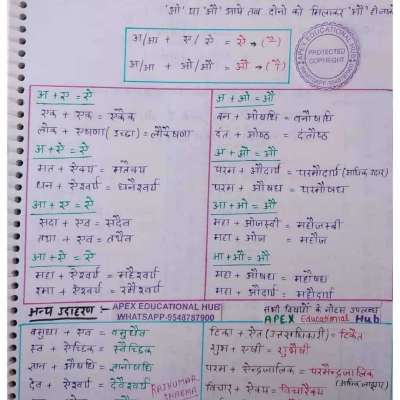 'ओ' या 'औ' आये तब दोनों को मिलाकर 'औ' हो जाता
अ/आ + ए/ऐ = ऐ → (ै)
अ/आ + ओ/औ = औ → (ौ)
APEX EDUCATIONAL HUB
PROTECTED
COPYRIGHT
अ + ए = ऐ
एक + एक = एकैक
लोक + एषणा (इच्छा) = लौकेषणा
अ + ऐ = ऐ
मत + ऐक्य = मतैक्य
धन + ऐश्वर्य = धनैश्वर्य
आ + ए = ऐ
सदा + एव = सदैव
तथा + एव = तथैव
आ + ऐ = ऐ
महा + ऐश्वर्य = महैश्वर्य
रमा + ऐश्वर्य = रमैश्वर्य
अ + ओ = औ
वन + औषधि = वनौषधि
दंत + ओष्ठ = दंतौष्ठ
अ + औ = औ
परम + औदार्य = परमौदार्य (अधिक उदार)
परम + औषध = परमौषध
आ + ओ = औ
महा + ओजस्वी = महौजस्वी
महा + ओज = महौज
आ + औ = औ
महा + औषध = महौषध
महा + औदार्य = महौदार्य
अन्य उदाहरण :-
APEX EDUCATIONAL HUB
WHATSAPP-9548787900
सभी विषयों के नोट्स उपलब्ध
APEX Educational Hub
वसुधा + एव = वसुधैव
स्व + ऐच्छिक = स्वैच्छिक
ज्ञान + औषधि = ज्ञानौषधि
देव + ऐश्वर्य = देवैश्वर्य
RAJKUMAR
SHARMA
टिका + ऐत (उत्तराधिकारी) = टिकैत
शुभ + एषी = शुभैषी
परम + ऐन्द्रजालिक = परमैन्द्रजालिक
(अधिक जादूगर)
विचार + ऐक्य = विचारैक्य